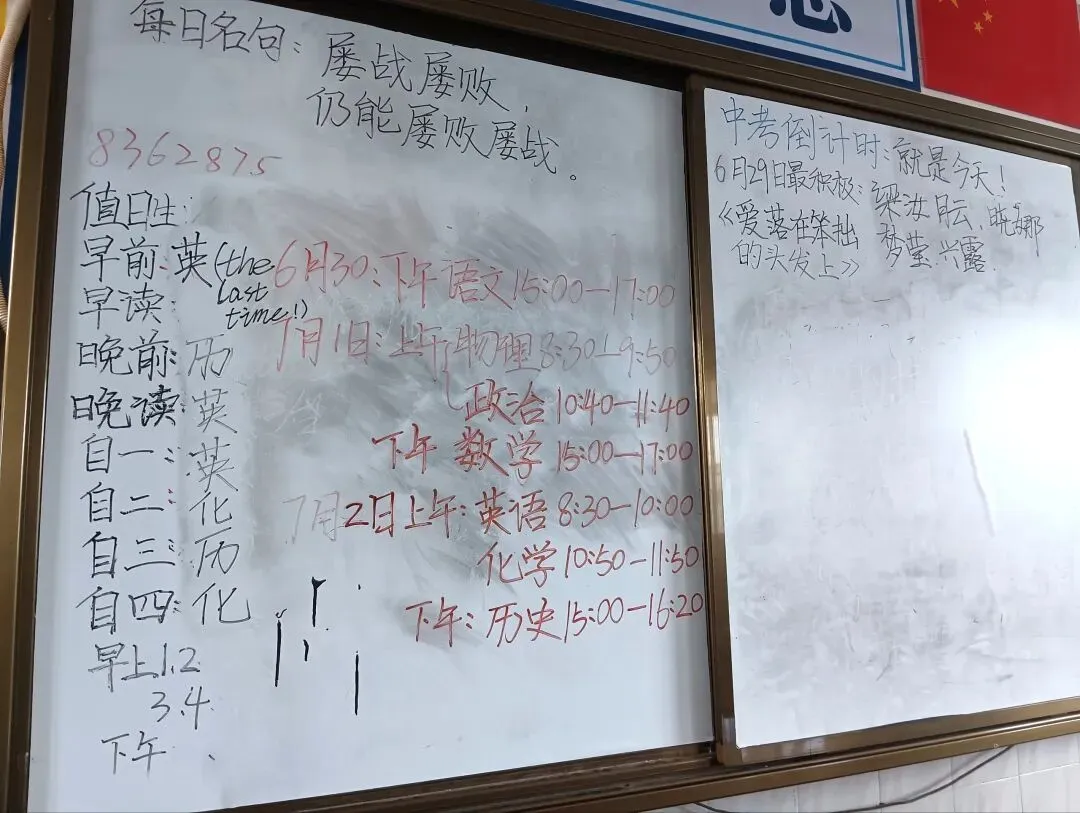 每日名句：屡战屡败，
仍能屡败屡战。
8362875
值日生：
早前：英(the last time!)
早读：
晚前：历
晚读：英
自一：英
自二：化
自三：历
自四：化
早上1、2
3、4
下午
6月30：下午语文15:00—17:00
7月1日：上午物理8:30—9:50
政治10:40—11:40
下午 数学 15:00—17:00
7月2日上午：英语 8:30—10:00
化学10:50—11:50
下午：历史15:00—16:20
中考倒计时：就是今天！
6月29日最积极：梁汝
梦莹 兴露
《爱落在笨拙
的头发上》